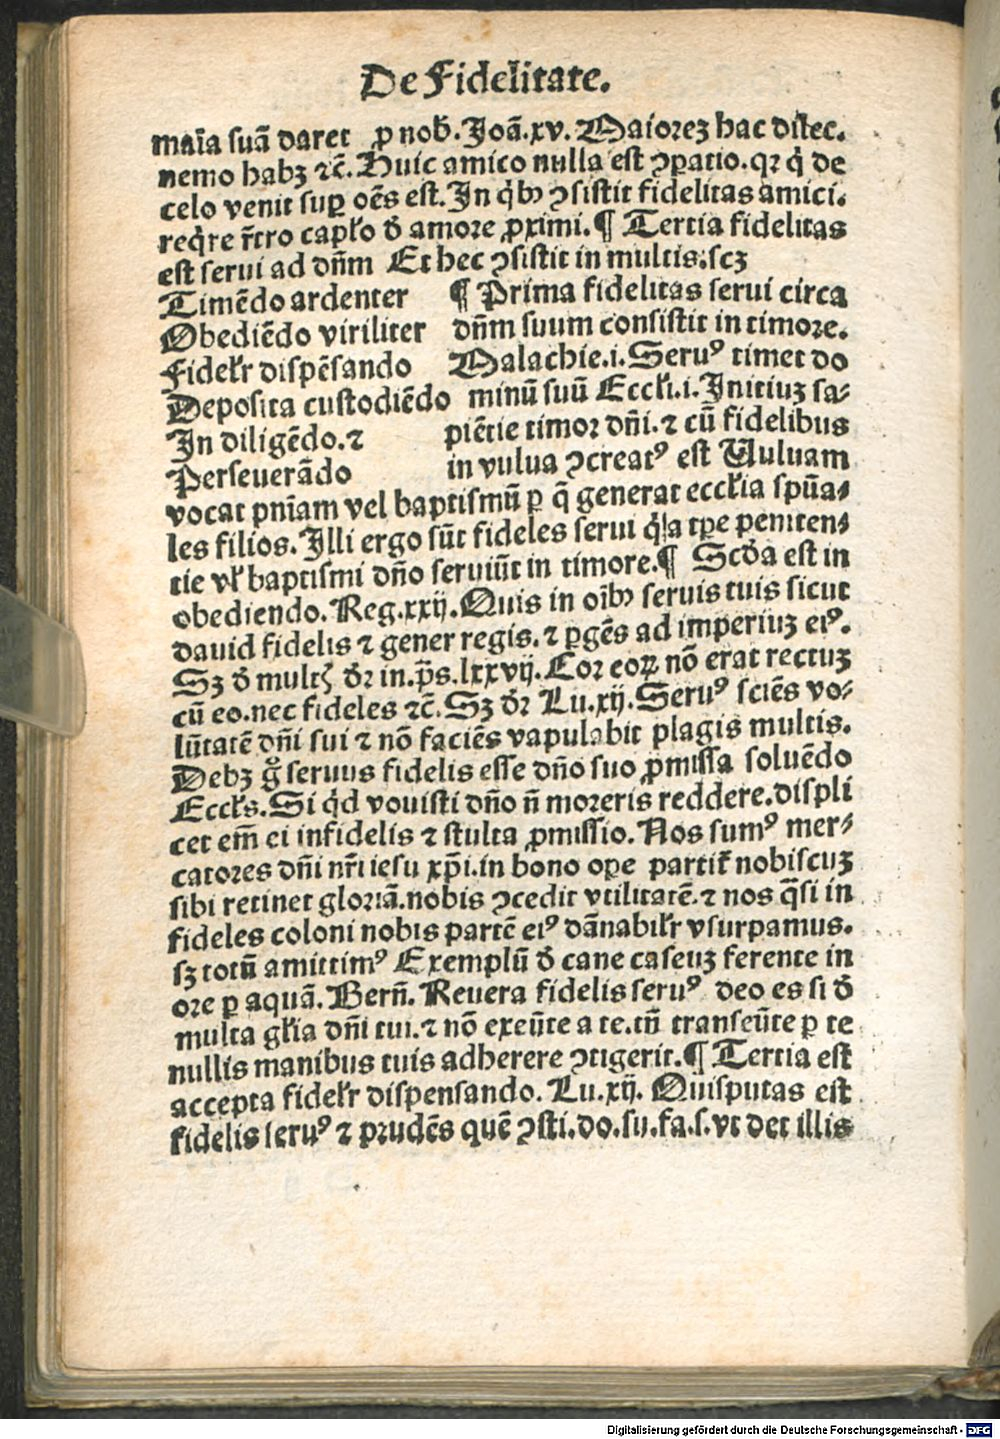 De Fidelitate.
maīa suā daret ꝓ nob̄. Joā.xv. Maiorez hac dilec.
nemo habꝫ ⁊c̄. Huic amico nulla est ꝯꝑatio.qꝛ q̇ de
celo venit suꝑ oēs est. In q̇bꝫ ꝯsistit fidelitas amici.
req̇re r̄tro capl̓o d̄ amore ꝓximi. ¶ Tertia fidelitas
est serui ad dn̄m Et hec ꝯsistit in multis.scꝫ
Timēdo ardenter
Obediēdo viriliter
Fidel̓r dispēsando
Deposita custodiēdo
In diligēdo.⁊
Perseuerādo
¶ Prima fidelitas serui circa
dn̄m suum consistit in timore.
Malachie.i. Seruꝰ timet do
minū suū Eccl̓i.i. Initiuꝫ sa⸗
piētie timoꝛ dn̄i.⁊ cū fidelibus
in vulua ꝯcreatꝰ est Vuluam
vocat pn̄iam vel baptismū ꝑ q̄ generat eccl̓ia spūa⸗
les filios. Illi ergo sūt fideles serui q̇ a tꝑe peniten⸗
tie vl̓ baptismi dn̄o seruiūt in timore. ¶ Scd̓a est in
obediendo. Reg.xxij. Quis in oībꝫ seruis tuis sicut
dauid fidelis ⁊ gener regis.⁊ ꝑgēs ad imperiuꝫ eiꝰ.
Sꝫ d̄ mult̉ d̄r in.p̄s.lxxvij. Coꝛ eoꝝ nō erat rectuꝫ
cū eo.nec fideles ⁊c̄. Sꝫ d̄r Lu.xij. Seruꝰ sciēs vo⸗
lūtatē dn̄i sui ⁊ nō faciēs vapulabit plagis multis.
Debꝫ g̊ seruus fidelis esse dn̄o suo ꝓmissa soluēdo
Eccl̓s. Si q̇d vouisti dn̄o n̄ moreris reddere.displi
cet em̄ ei infidelis ⁊ stulta ꝓmissio. Nos sumꝰ mer⸗
catores dn̄i nr̄i iesu xp̄i.in bono oꝑe partit̉ nobiscuꝫ
sibi retinet gloꝛiā.nobis ꝯcedit vtilitatē.⁊ nos q̄si in
fideles coloni nobis partē eiꝰ dānabil̓r vsurpamus.
sꝫ totū amittimꝰ Exemplū d̄ cane caseuꝫ ferente in
oꝛe ꝑ aquā. Bern̄. Reuera fidelis seruꝰ deo es si d̄
multa gl̓ia dn̄i tui.⁊ nō exeūte a te.tn̄ transeūte ꝑ te
nullis manibus tuis adherere ꝯtigerit. ¶ Tertia est
accepta fidel̓r dispensando. Lu.xij. Quisputas est
fidelis seruꝰ ⁊ prudēs quē ꝯsti.do.su.fa.s.vt det illis
Digitalisierung gefördert durch die Deutsche Forschungsgemeinschaft - DFG